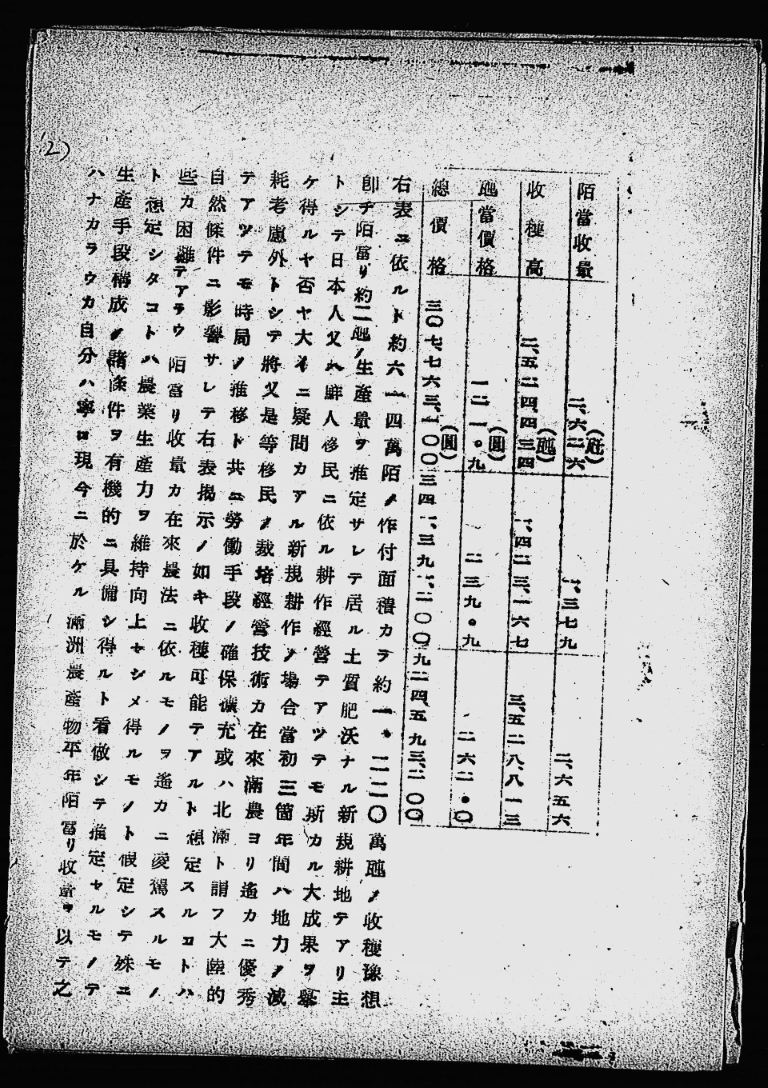 2)
陌當收量 二、六二六(瓲) 一、三七九 二、六五六
收穫高 二、五二四、四三四(瓲) 一、四二三、一六七 三、五二八、八一三
瓲當價格 一二一・九(圓) 二三九・九 二六二・〇
總價格 三〇七、七六三、一〇〇(圓) 三四一、三九一、二〇〇 九二四、五九三、二〇〇
右表ニ依ルト約六一四萬陌ノ作付面積カラ約一、二二〇萬瓲ノ收穫豫想
卽チ陌當リ約二瓲ノ生產量ヲ推定サレテ居ル土質肥沃ナル新規耕地テアリ主
トシテ日本人又ハ鮮人移民ニ依ル耕作經營テアツテモ斯カル大成果ヲ擧
ケ得ルヤ否ヤ大イニ疑問カアル新規耕作ノ場合當初三箇年間ハ地力ノ減
耗考慮外トシテ將又是等移民ノ栽培經營技術カ在來滿農ヨリ遙カニ優秀
テアツテモ時局ノ推移ト共ニ勞働手段ノ確保擴充或ハ北滿ト謂フ大陸的
自然條件ニ影響サレテ右表揭示ノ如キ收穫可能テアルト想定スルコトハ
些カ困難テアラウ陌當リ收量カ在來農法ニ依ルモノヲ遙カニ凌駕スルモノ
ト想定シタコトハ農業生產力ヲ維持向上セシメ得ルモノト假定シテ殊ニ
生產手段構成ノ諸條件ヲ有機的ニ具備シ得ルト看做シテ推定セルモノテ
ハナカラウカ自分ハ寧ロ現今ニ於ケル滿洲農產物平年陌當リ收量ヲ以テ之